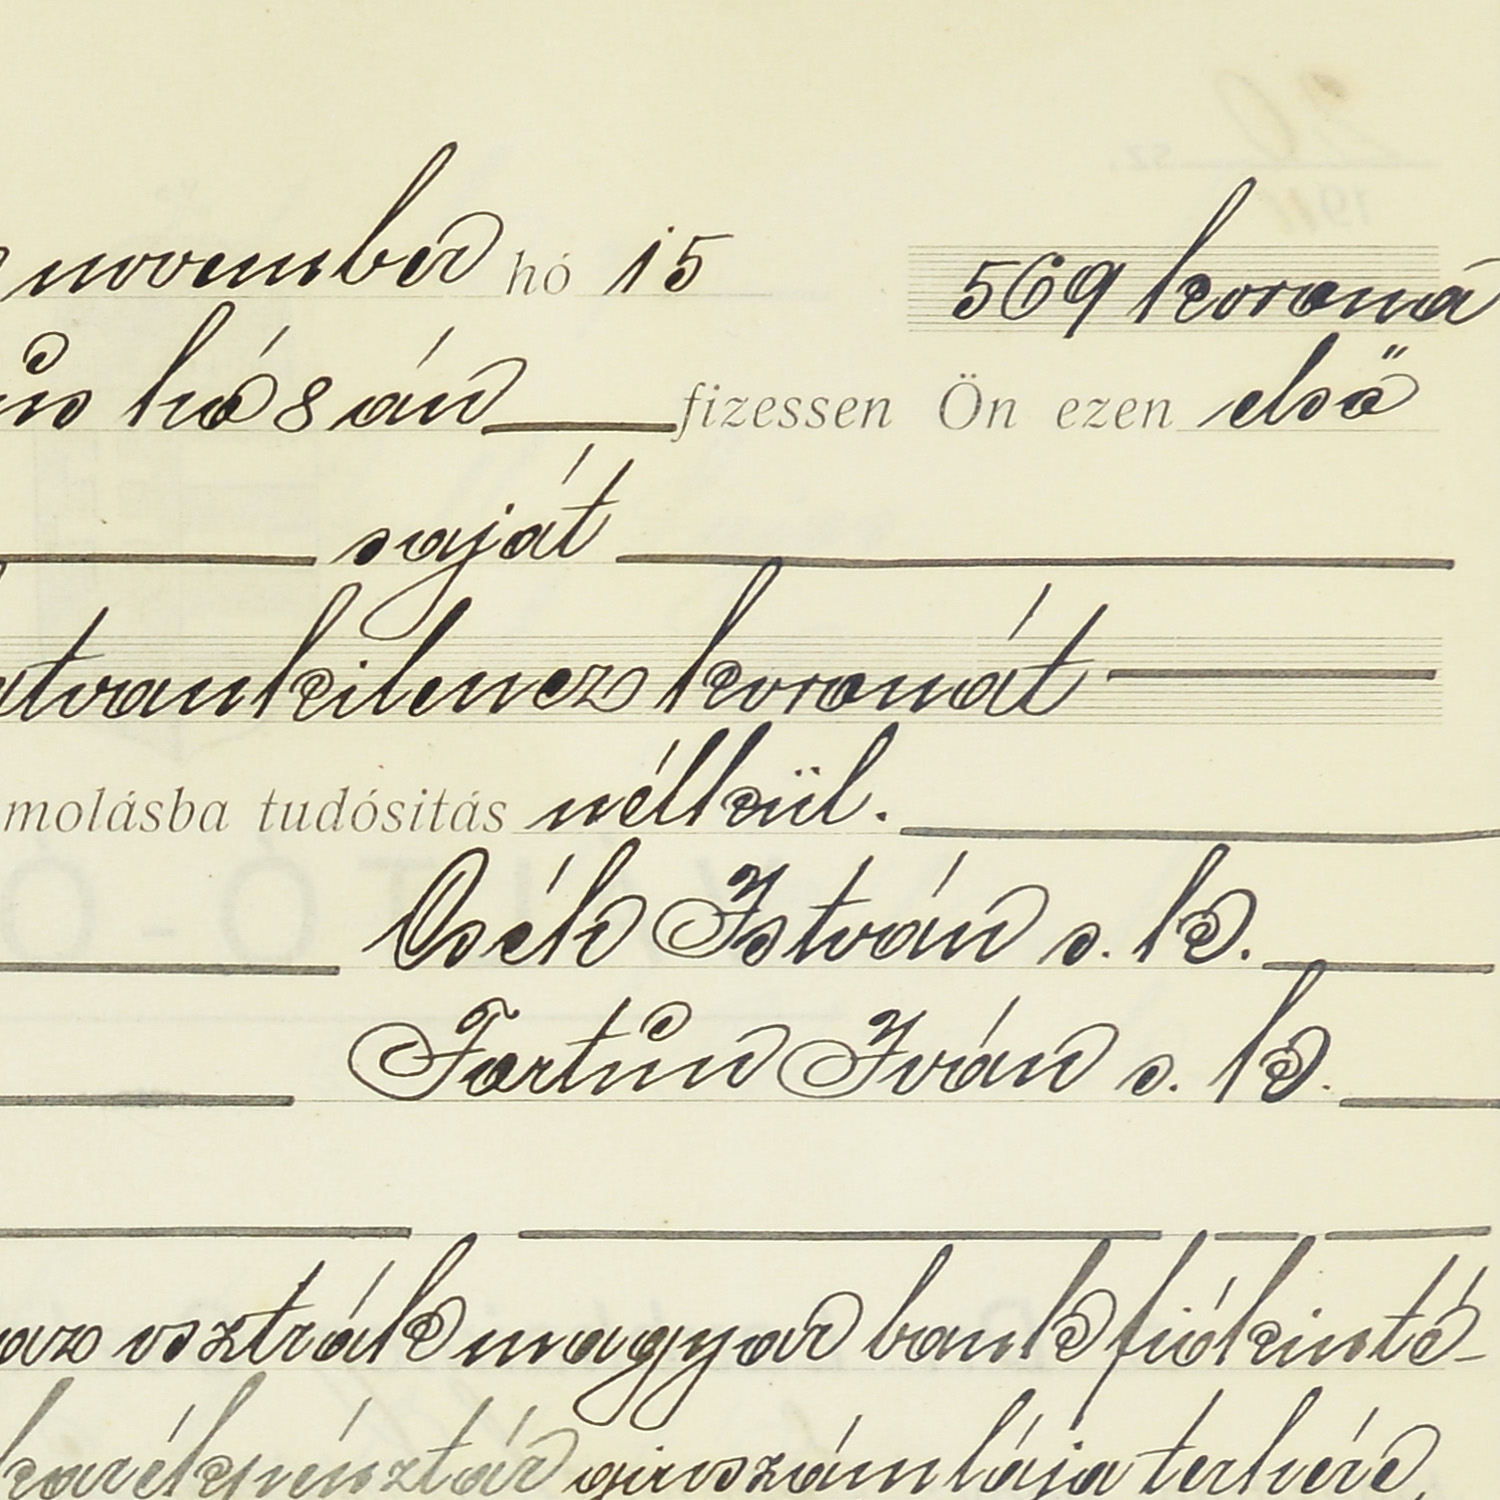 november hó 15 569 korona
hó 8 án fizessen Ön ezen első
saját
kilencz koronát
molásba tudósitás nélkül.
Cséh István s. k.
Fortún Iván s. k.
az osztrák magyar bank fiókinté-
girószámlája terhére,